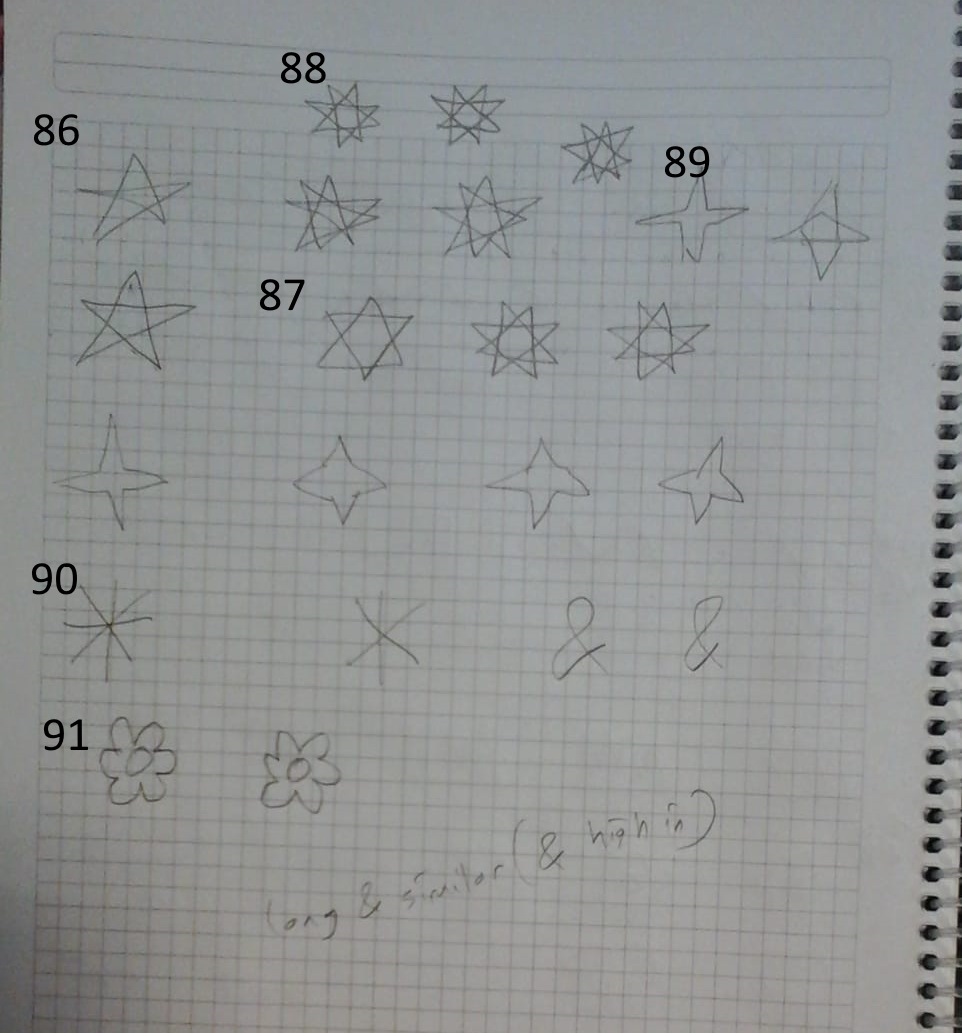 88
86
89
87
90
& &
91
long & similar (& high in)